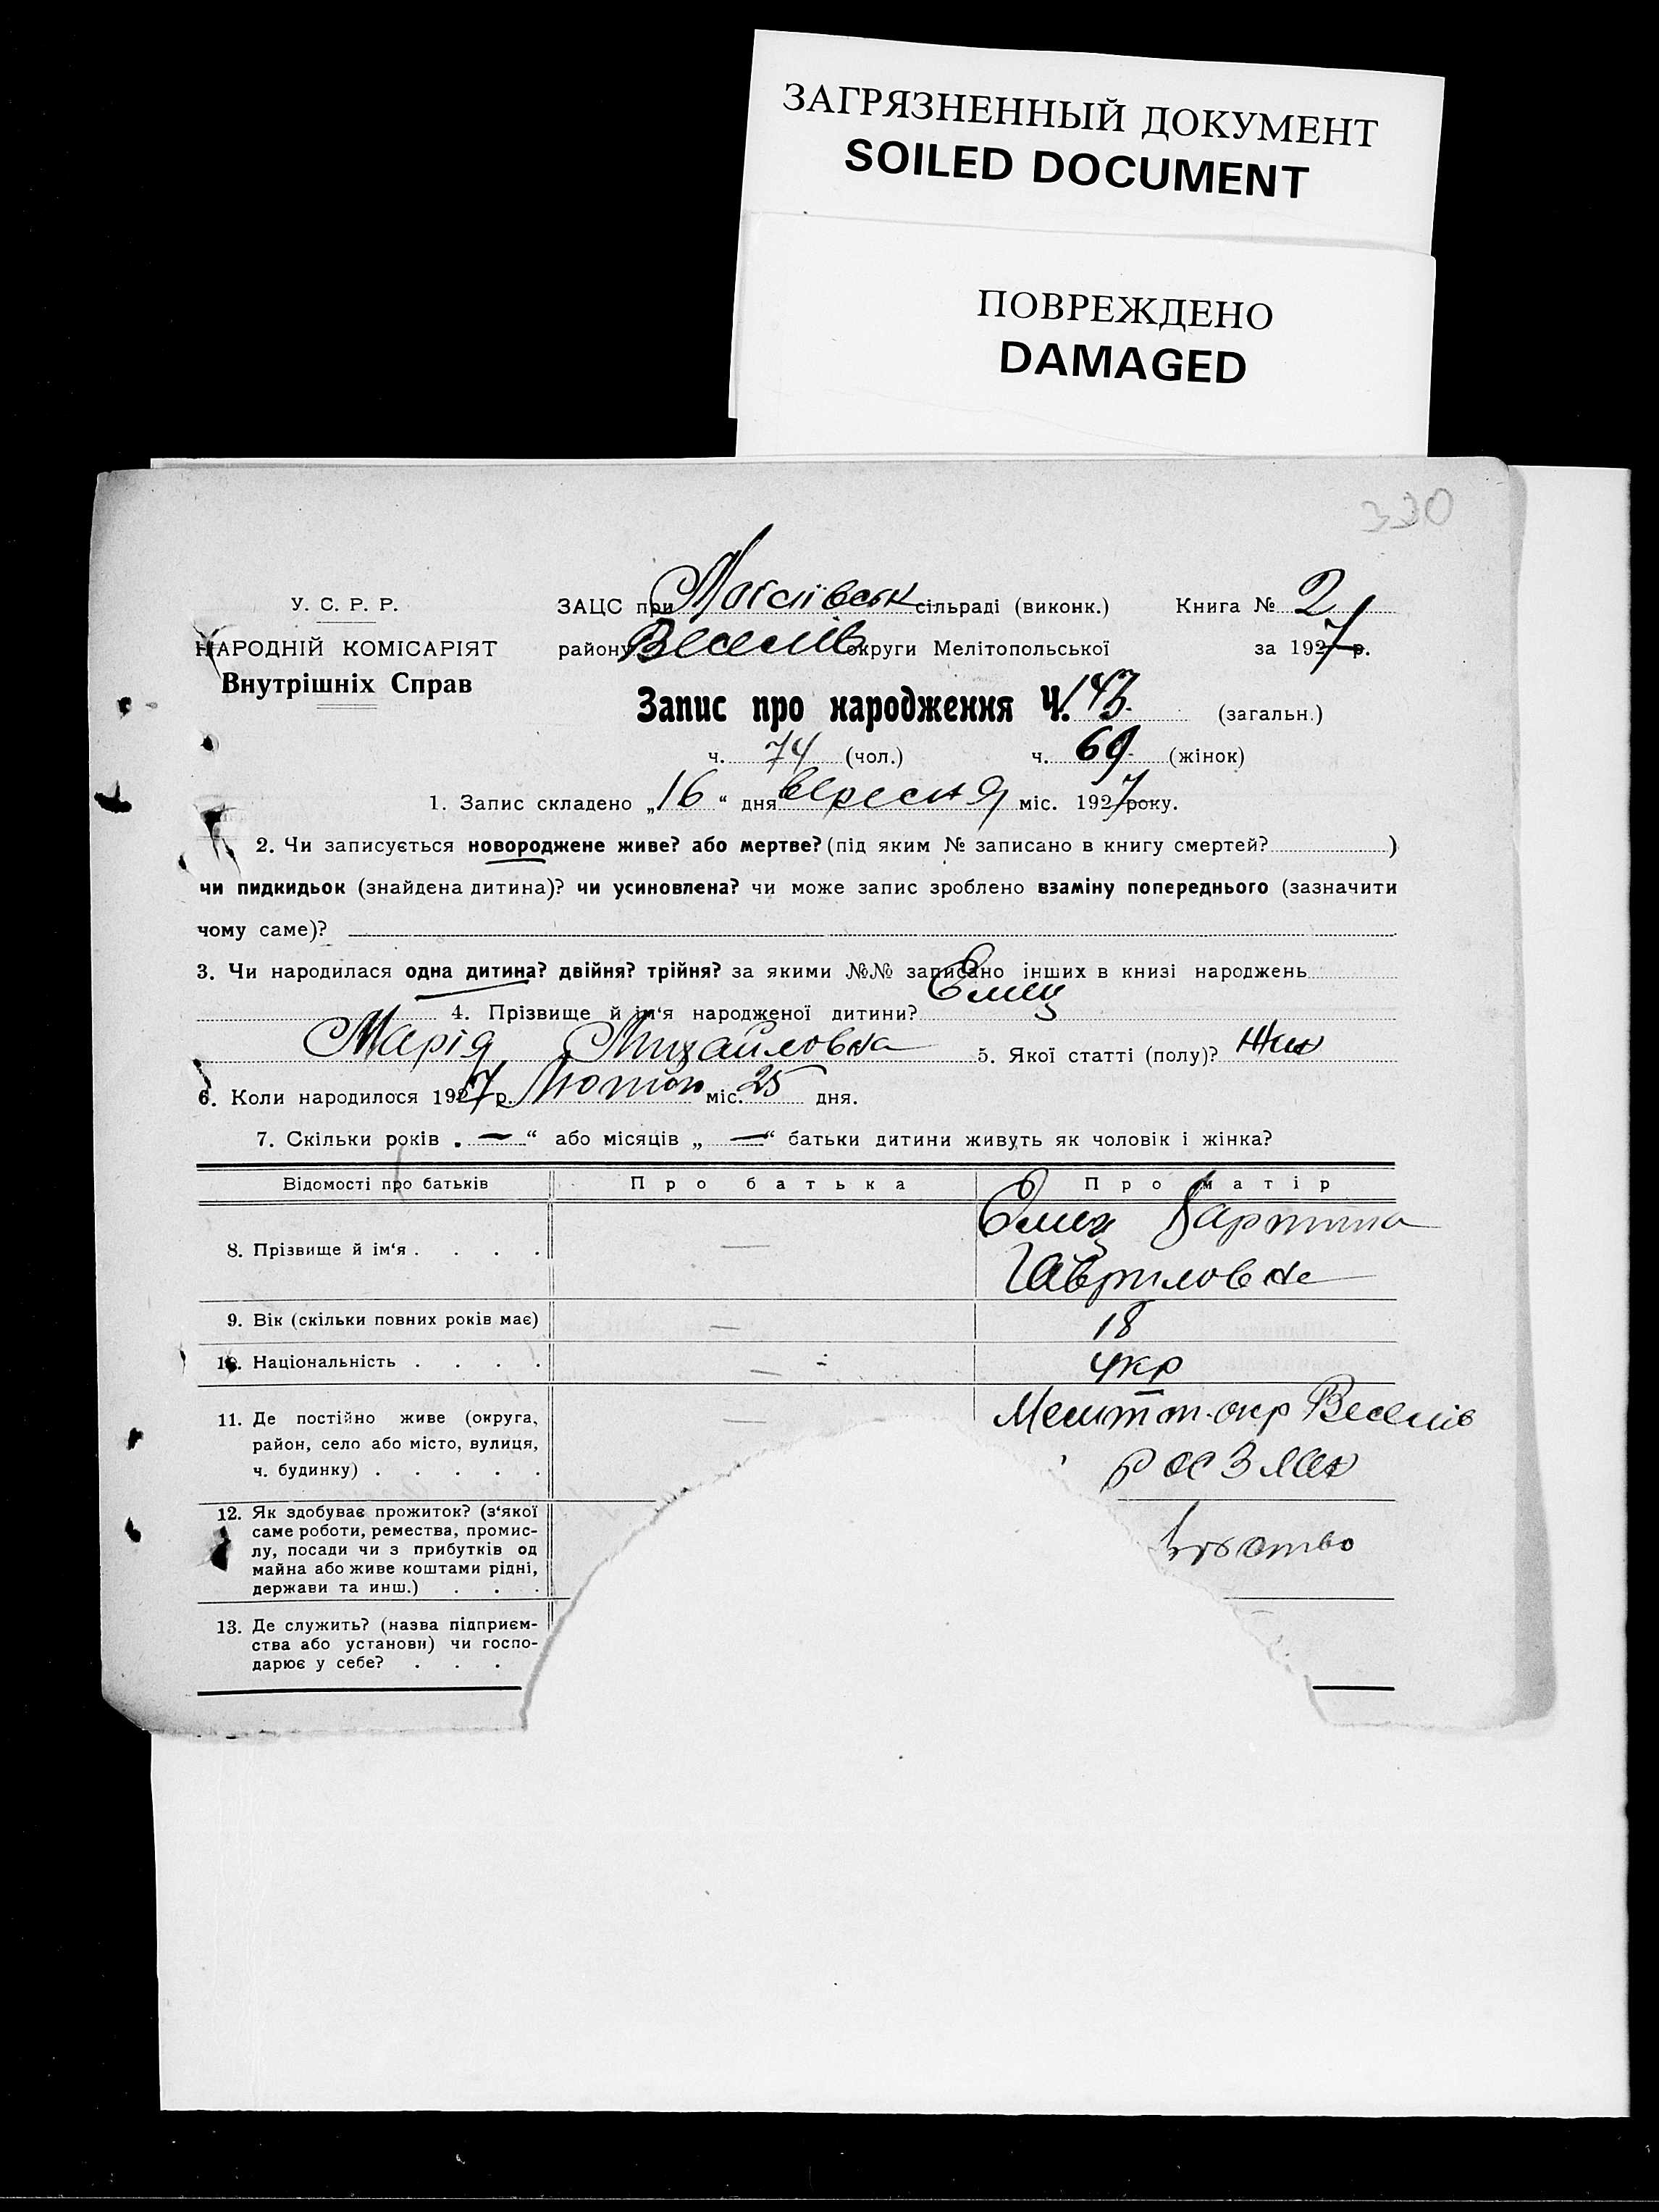 ЗАГРЯЗНЕННЫЙ ДОКУМЕНТ
SOILED DOCUMENT
ПОВРЕЖДЕНО
DAMAGED
330
У. С. Р. Р.
НАРОДНІЙ КОМІСАРІЯТ
Внутрішніх Справ
ЗАЦС при сільраді (виконк.) Книга № 2
району Веселів округи Мелітопольської за 1927 р.
Запис про народження Ч. 143 (загальн.)
ч. 74 (чол.) ч. 69 (жінок)
1. Запис складено „16“ дня вересня міс. 1927 року.
2. Чи записується новороджене живе? або мертве? (під яким № записано в книгу смертей? )
чи пидкидьок (знайдена дитина)? чи усиновлена? чи може запис зроблено взаміну попереднього (зазначити
чому саме)?
3. Чи народилася одна дитина? двійня? трійня? за якими №№ записано інших в книзі народжень
4. Прізвище й ім‘я народженої дитини? Емец
Марія Михайловна 5. Якої статті (полу)? жин
6. Коли народилося 1927 р. Лютого міс. 25 дня.
7. Скільки років „ — “ або місяців „ — “ батьки дитини живуть як чоловік і жінка?
Відомості про батьків Про батька Про матір
8. Прізвище й ім‘я . . . . — Емец
Гавриловна
9. Вік (скільки повних років має) — 18
10. Національність . . . . — укр
11. Де постійно живе (округа, район, село або місто, вулиця, ч. будинку) . . . . . — Мелітоп. окр Веселів
12. Як здобуває прожиток? (з‘якої
саме роботи, ремества, промис-
лу, посади чи з прибутків од
майна або живе коштами рідні,
держави та инш.) . . .
13. Де служить? (назва підприєм-
ства або установи) чи госпо-
дарює у себе? . . .